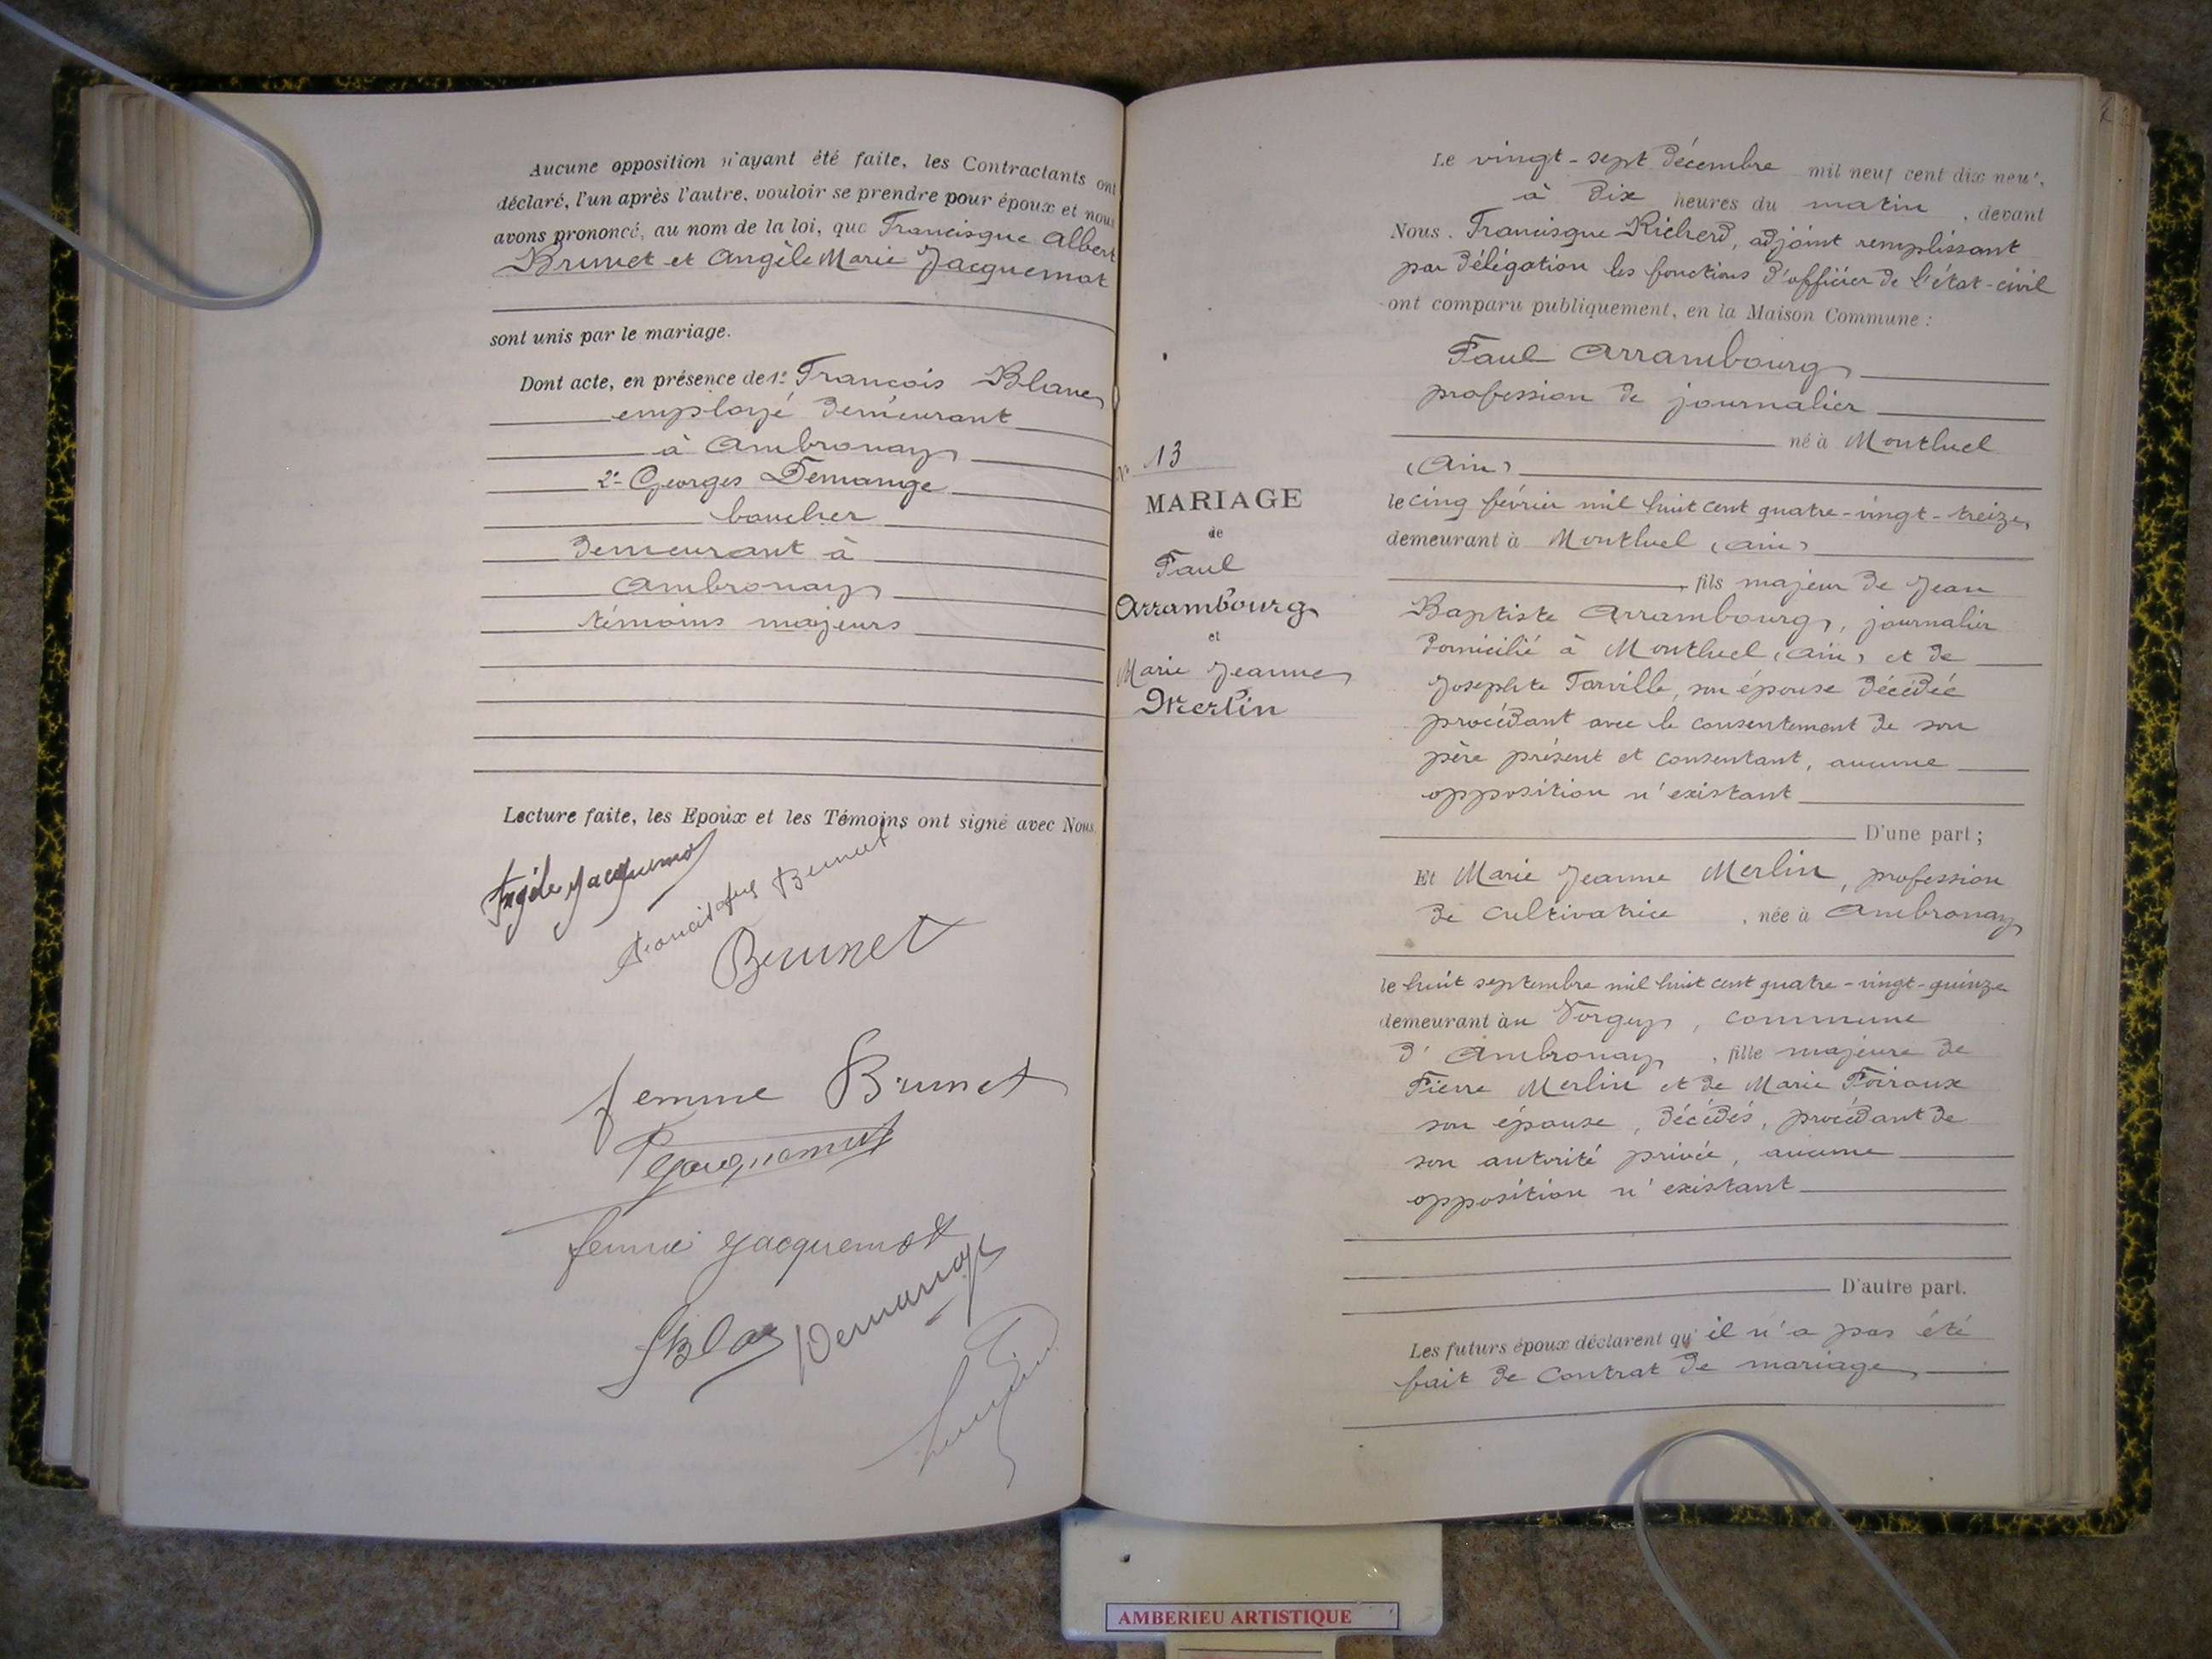 Aucune opposition n'ayant été faite, les Contractants ont
déclaré, l'un après l'autre, vouloir se prendre pour époux et nous
avons prononcé, au nom de la loi, que Francisque Albert
Brunet et Angèle Marie Jacquemot
sont unis par le mariage.
Dont acte, en présence de 1º François Blanc
employé demeurant
à Ambronay
2º Georges Demange
boucher
demeurant à
Ambronay
témoins majeurs
Lecture faite, les Epoux et les Témoins ont signé avec Nous.
Angèle Jacquemot
Brunet
Brunet
femme Brunet
Jacquemot
femme Jacquemot
Demange
Nº 13
MARIAGE
de
Paul
Arrambourg
et
Marie Jeanne
Merlin
Le vingt-sept décembre mil neuf cent dix neuf,
à dix heures du matin, devant
Nous. Francisque Richerd, adjoint remplissant
par délégation les fonctions d'officier de l'état-civil
ont comparu publiquement, en la Maison Commune :
Paul Arrambourg
profession de journalier
né à Montluel
(Ain)
le cinq février mil huit cent quatre-vingt-treize,
demeurant à Montluel (Ain)
fils majeur de Jean
Baptiste Arrambourg, journalier
domicilié à Montluel (Ain) et de
Josephte Tarville, son épouse décédée
procédant avec le consentement de son
père présent et consentant, aucune
opposition n'existant
D'une part ;
Et Marie Jeanne Merlin, profession
de cultivatrice, née à Ambronay
le huit septembre mil huit cent quatre-vingt-quinze
demeurant au Vorgey, commune
d'Ambronay, fille majeure de
Pierre Merlin et de Marie Poiraux
son épouse, décédés, procédant de
son autorité privée, aucune
opposition n'existant
D'autre part.
Les futurs époux déclarent qu'il n'a pas été
fait de contrat de mariage
AMBERIEU ARTISTIQUE